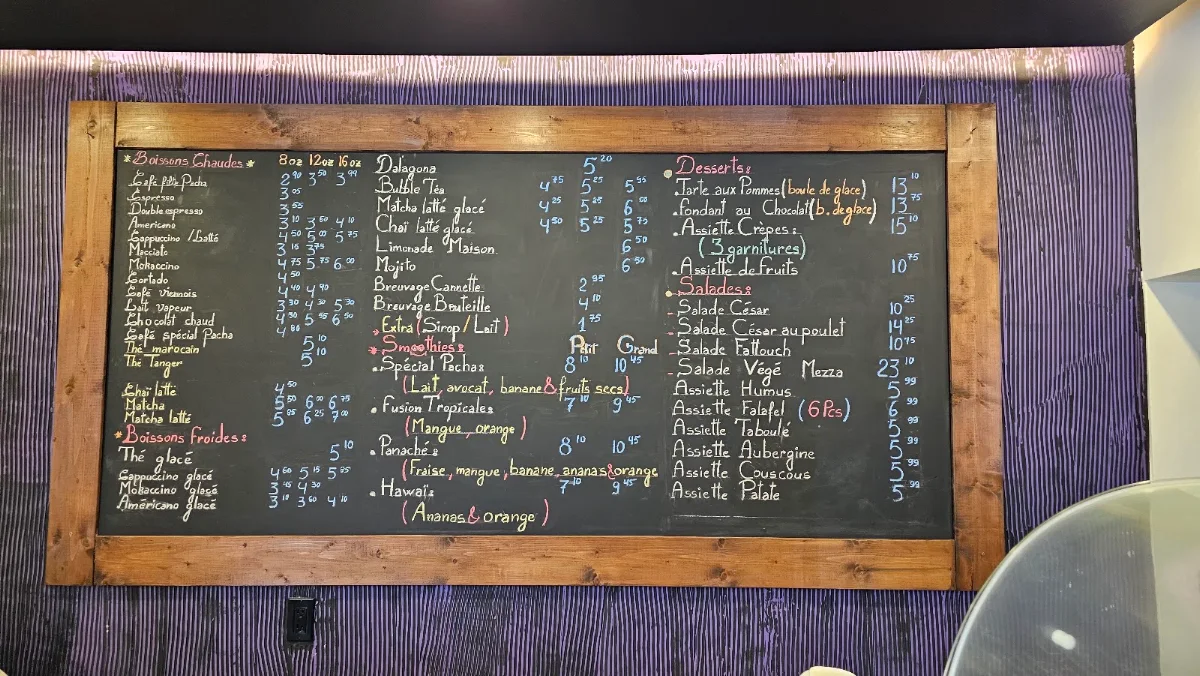 * Boissons Chaudes * 8oz 12oz 16oz
Café filtre Pacha 2 90 3 50 3 99
Espresso 3 05
Double espresso 3 55
Americano 3 10 3 50 4 10
Cappuccino / Latté 4 50 5 00 5 75
Macciato 3 15 3 75
Mokaccino 4 75 5 75 6 00
Cortado 4 50
Café Viennois 4 40 4 90
Lait vapeur 3 30 4 30 5 30
Chocolat chaud 4 30 5 55 6 50
Café spécial Pacha 4 80
Thé marocain 5 10
Thé Tanger 5 10
Chaï latté 4 50
Matcha 5 50 6 00 6 75
Matcha latté 5 95 6 25 7 00
* Boissons Froides :
Thé glacé 5 10
Cappuccino glacé 4 60 5 15 5 95
Mokaccino glacé 3 45 4 30
Américano glacé 3 10 3 60 4 10
Dalagona 5 20
Bubble Téa 4 75 5 25 5 95
Matcha latté glacé 4 25 5 25 6 00
Chaï latté glacé 4 50 5 25 5 75
Limonade Maison 6 50
Mojito 6 50
Breuvage Cannette 2 95
Breuvage Bouteille 4 10
. Extra (Sirop / Lait) 1 75
* Smoothies : Petit Grand
. Spécial Pacha : 8 10 10 45
(Lait, avocat, banane & fruits secs)
. Fusion Tropicale : 7 10 9 45
(Mangue, orange)
. Panaché : 8 10 10 45
(Fraise, mangue, banane, ananas & orange
. Hawaï : 7 10 9 45
(Ananas & orange)
. Desserts :
. Tarte aux Pommes (boule de glace) 13 10
. Fondant au Chocolat (b. de glace) 13 75
. Assiette Crêpes : 15 10
(3 garnitures)
. Assiette de fruits 10 75
. Salades :
- Salade César 10 25
- Salade César au poulet 14 25
- Salade Fattouch 10 75
- Salade Végé Mezza 23 10
Assiette Humus 5 99
Assiette Falafel (6 Pcs) 6 99
Assiette Taboulé 5 99
Assiette Aubergine 5 99
Assiette Couscous 5 99
Assiette Patate 5 99